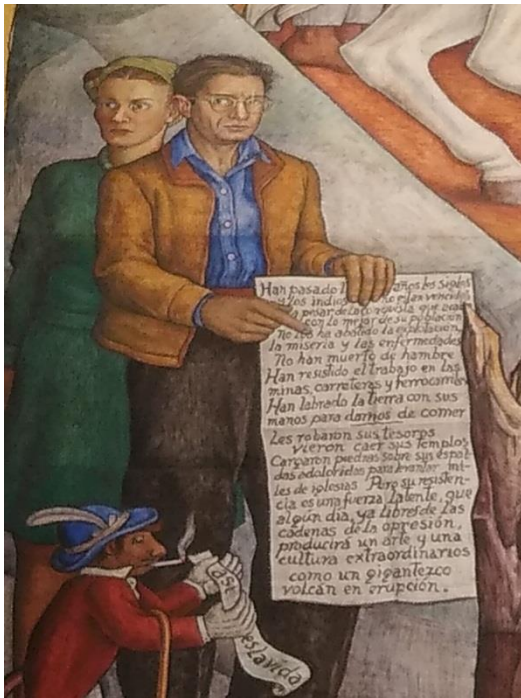 Han pasado los años los siglos
los indios no están vencidos
A pesar de la conquista que acabó
con lo mejor de su población
No los ha abatido la explotación,
la miseria y las enfermedades
No han muerto de hambre
Han resistido el trabajo en las
minas, carreteras y ferrocarriles
Han labrado la tierra con sus
manos para darnos de comer
Les robaron sus tesoros
vieron caer sus templos
Cargaron piedras sobre sus espal-
das adoloridas para levantar mi-
les de iglesias Pero su resisten-
cia es una fuerza latente, que
algún dia, ya libres de las
cadenas de la opresión,
producirá un arte y una
cultura extraordinarios
como un gigantezco
volcán en erupción.
así
es la vida